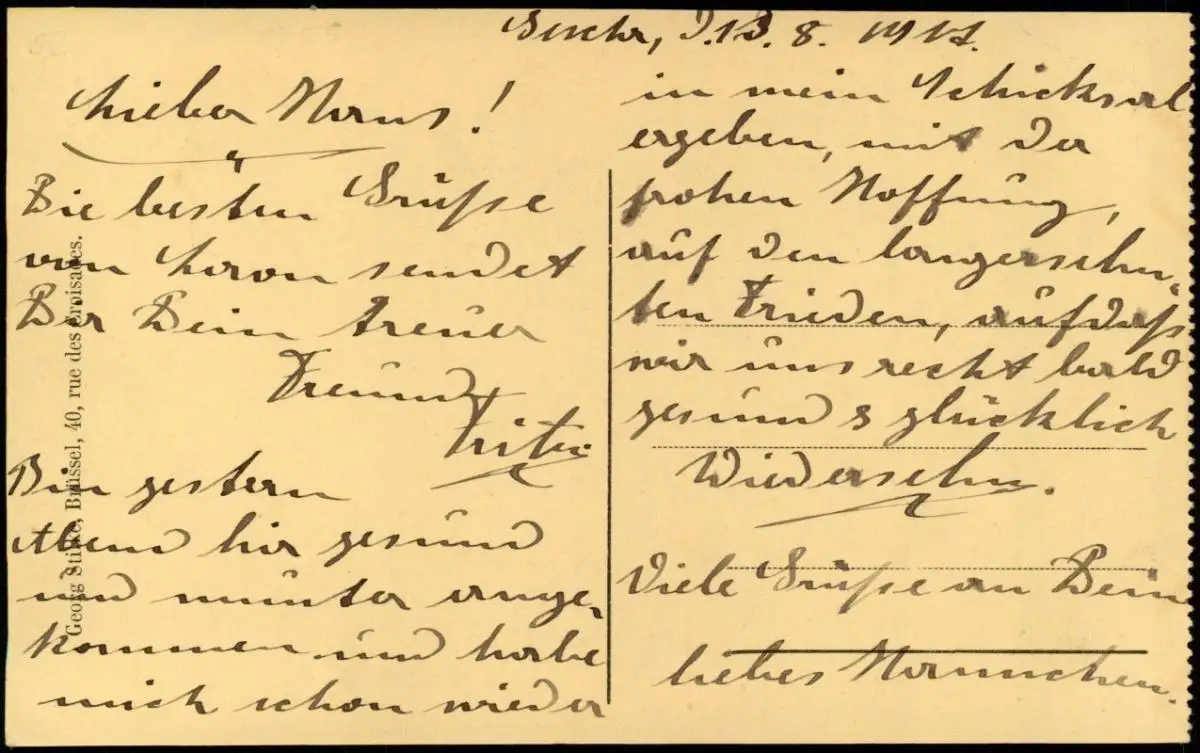 d. 13. 8. 1917.
Lieber Hans!
Die besten Grüsse
von hier sendet
Dir Dein treuer
Freund
Fritz.
Bin gestern
Abend hir gesund
und munter ange-
kommen und habe
mich schon wieder
in mein Schicksal
ergeben, mit der
frohen Hoffnung,
auf den langersehn-
ten Frieden, aufdass
wir uns recht bald
gesund & glücklich
Wiedersehn.
Viele Grüsse an Dein
liebes Mamachen.
Georg Stilke, Brüssel, 40, rue des Croisades.